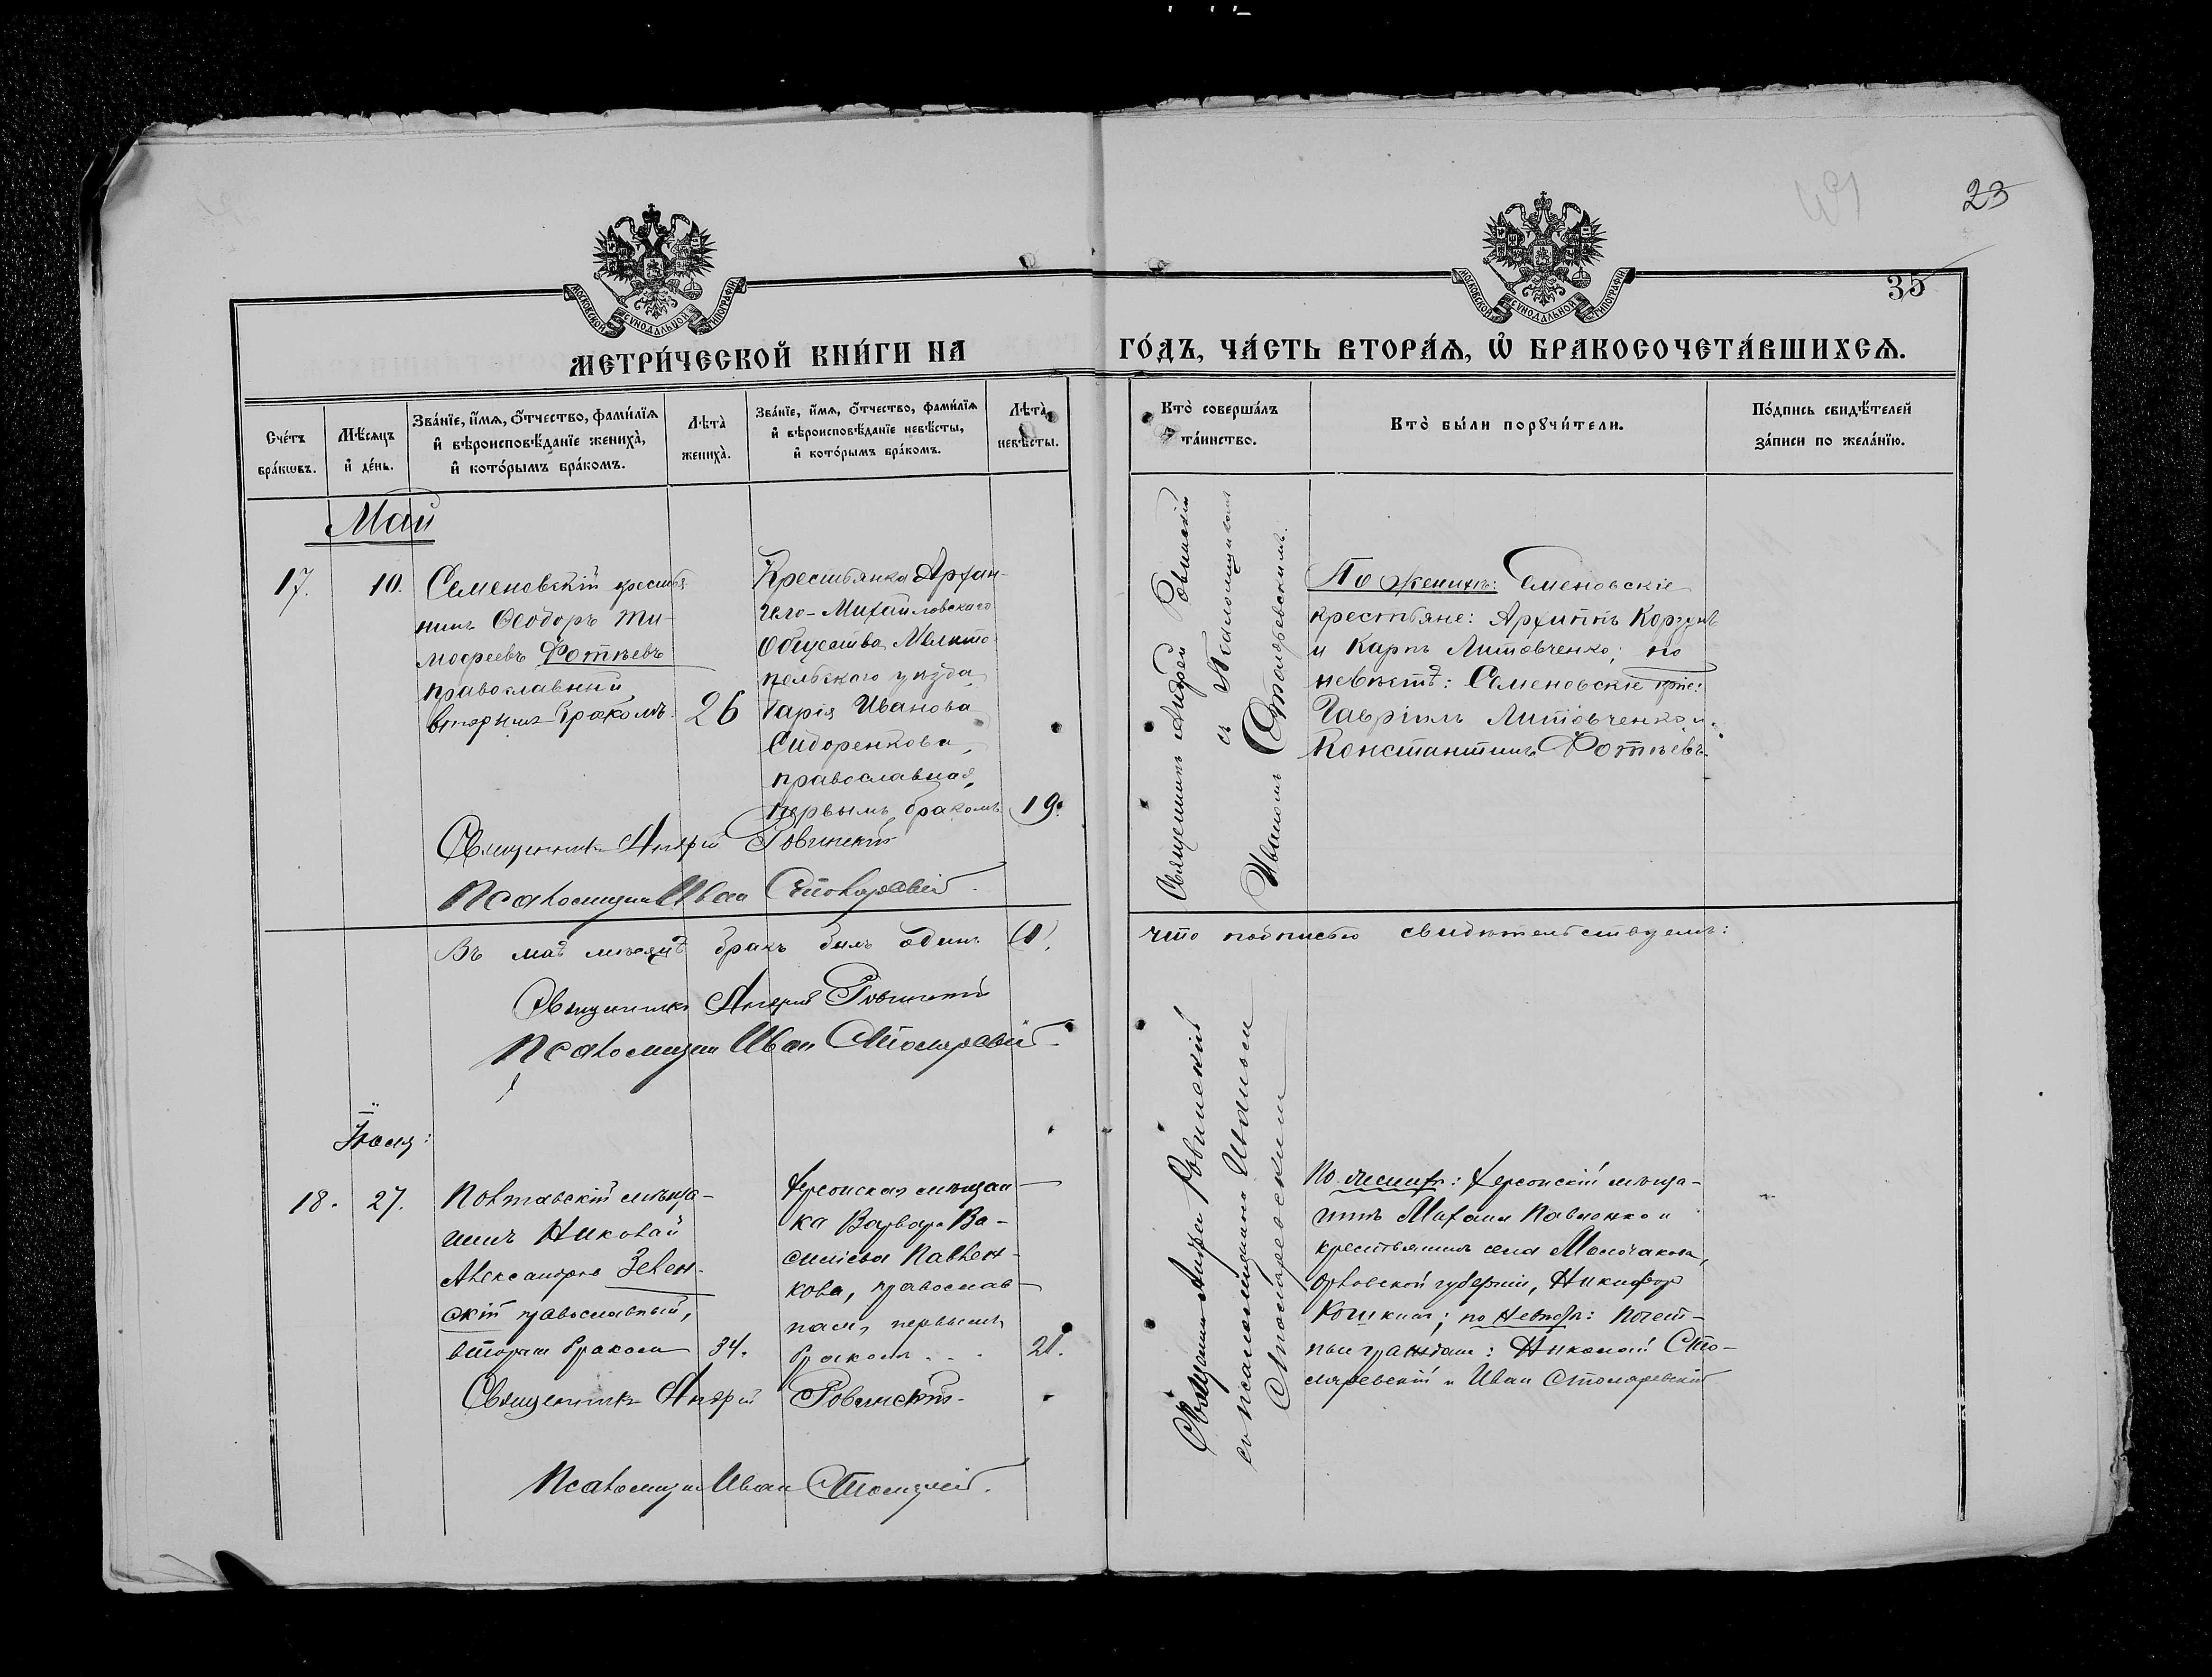 23
35
МОСКОВСКОЙ СѴНОДАЛЬНОЙ ТИПОГРАФІИ
МОСКОВСКОЙ СѴНОДАЛЬНОЙ ТИПОГРАФІИ
МЕТРИ́ЧЕСКОЙ КНИ́ГИ НА
ГО́ДЪ, ЧА́СТЬ ВТОРА́Ѧ, Ѡ҆ БРАКОСОЧЕТА́ВШИХСѦ.
Сче́тъ бра́кѡвъ.
Мѣ́сѧцъ и҆ де́нь.
Зва́нїе, и҆́мѧ, ѻ҆́тчество, фами́лїѧ и҆ вѣроисповѣ́данїе жениха̀, и҆ кото́рымъ бра́комъ.
Лѣта̀ жениха̀.
Зва́нїе, и҆́мѧ, ѻ҆́тчество, фами́лїѧ и҆ вѣроисповѣ́данїе невѣ́сты, и҆ кото́рымъ бра́комъ.
Лѣта̀ невѣ́сты.
Кто̀ соверша́лъ та́инство.
Кто̀ бы́ли порꙋчи́тели.
По́дпись свидѣ́телей за́писи по жела́нїю.
Май
17.
10.
Семеновскій кресть
нинъ Ѳеодоръ Ти-
моѳеевъ Фотѣевъ
православный,
вторымъ бракомъ.
26
Крестьянка Архан-
гело-Михайловскаго
Общества Мелито-
польскаго уѣзда
Дарія Иванова
Сидоренкова,
православная,
первымъ бракомъ
19.
Священникъ Андрей Ровинскій
съ Псаломщикомъ
Иваномъ Столяревскимъ.
По женихѣ: Семеновскіе
крестьяне: Архиппъ Коргунъ
и Карпъ Литовченко; по
невѣстѣ: Семеновскіе кр-не:
Гавріилъ Литовченко и
Константинъ Фотѣевъ.
Священникъ Андрей Ровинскій
Псаломщикъ Иван Столяревскій
Въ маѣ мѣсяцѣ бракъ былъ одинъ (1),
что подписью свидѣтельствуемъ:
Священникъ Андрей Ровинскій
Псаломщик Иван Столяревскій
18.
27.
Полтавскій мѣща-
нинъ Николай
Александровъ Зелен-
скій православный,
вторым браком
34.
Херсонская мѣщан-
ка Варвара Ва-
силіева Павлен-
кова, православ-
ная, первымъ
бракомъ . . .
21.
Священникъ Андрей Ровинскій
съ псаломщикомъ Иваном
Столяревским
По женихѣ: Херсонскій мѣща-
нинъ Михаил Павленко и
крестьянинъ села
Орловской губерніи, Никифор
Кошкин; по невѣстѣ: Почет-
ные граждане: Николай Сто-
ляревскій и Иван Столяревскій
Священникъ Андрей Ровинскій
Псаломщик Иван Столяревскій